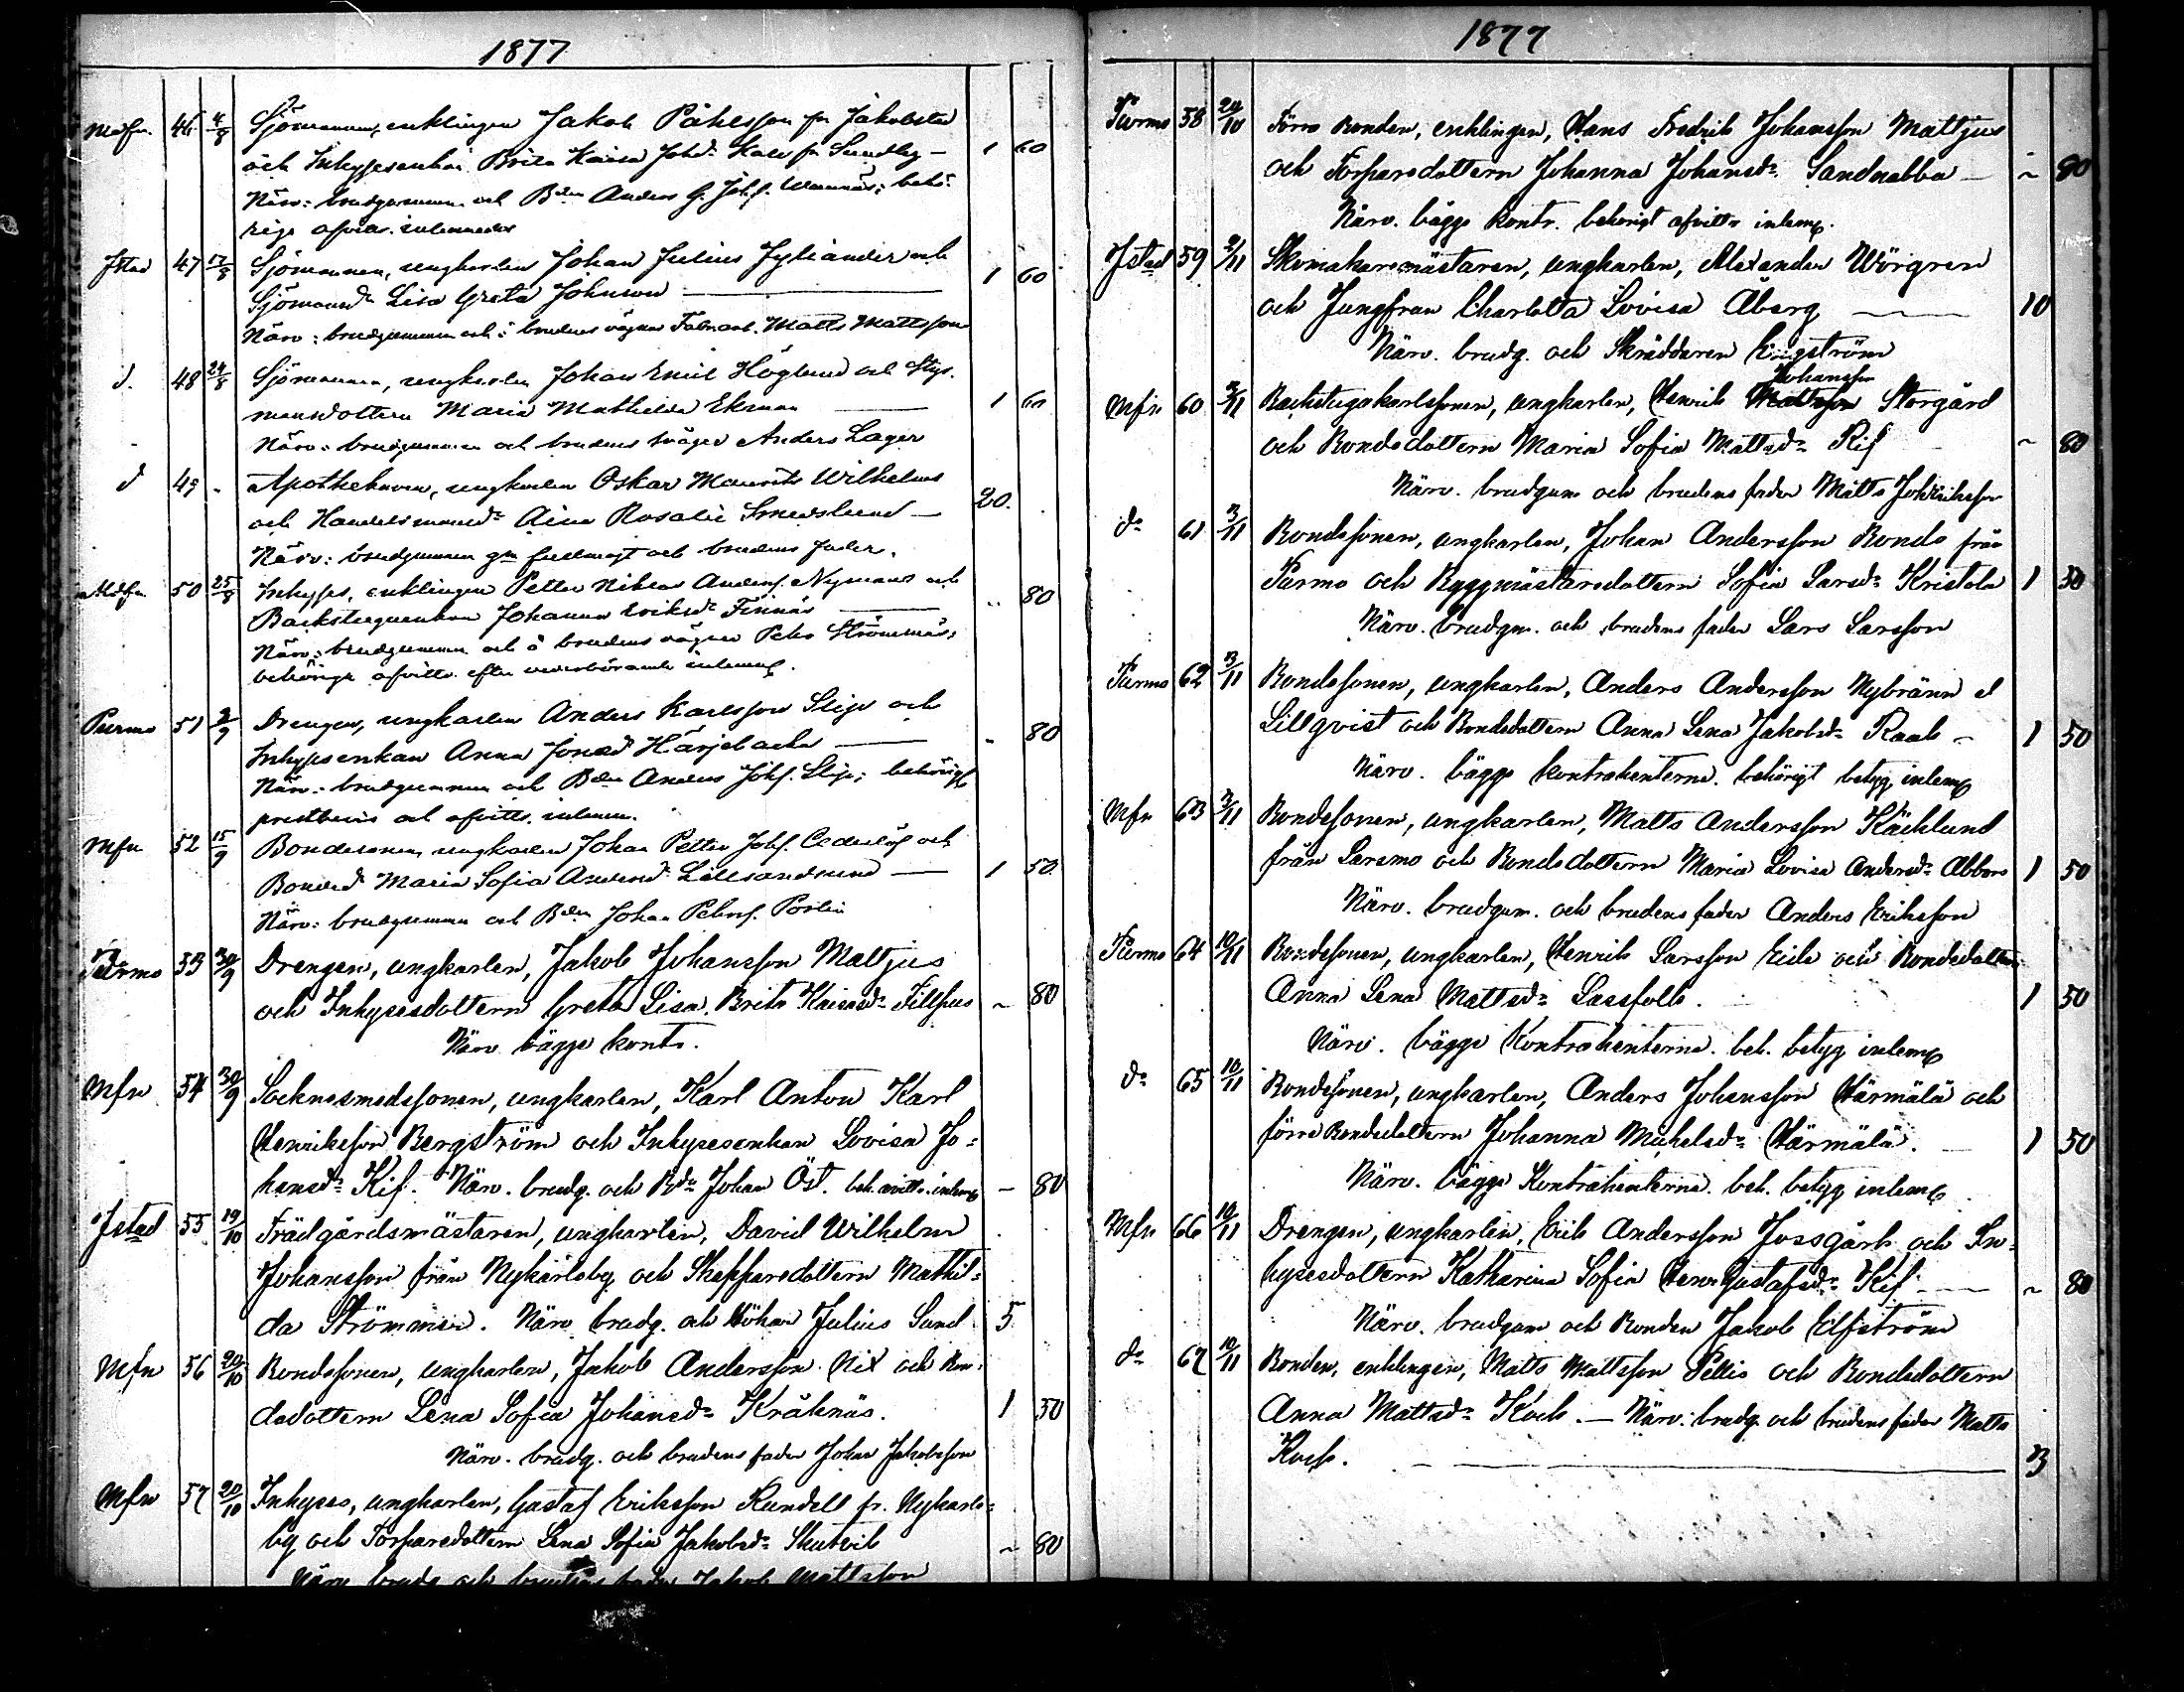 1877
Mofn. 46 4/8 Sjömannen, enklingen Jakob Påhlsson fr Jakobstad
och Inhysesenkan Brita Kaisa Johd: fr Sundby — 1 60
Närv: brudgummen och Bden Anders G. Johs. behö-
rige afvittr. inlemnades
Jstad 47 17/8 Sjömannen, ungkarlen Johan Julius Jylhander och
Sjömansd: Lisa Greta Johnson — 1 60
Närv: brudgummen och å brudens vägnar Matts Mattsson
d. 48 24/8 Sjömannen, ungkarlen Johan Emil Höglund och Styr-
mansdottern Maria Mathilda Ekman — 1 60
Närv: brudgummen och brudens svåger Anders Lager
d 49 " Apothekaren, ungkarlen Oskar Maurits Wilhelms
och Handelsmansd: Aina Rosalie Smedslund — 20.
Närv: brudgummen gm fullmagt och brudens fader.
Mofn 50 25/8 Inhyses, enklingen Petter Niklas Anders. Nyman och
Backstuguenkan Johanna Eriksd: Finnäs — " 80
Närv: brudgummen och å brudens vägnar Petter Strömnäs,
behöriga afvittr. efter vederbörande inlemn.
Purmo 51 2/9 Drengen, ungkarlen Anders Karlsson Slip och
Inhysesenkan Anna Jonæd — " 80
Närv: brudgummen och Bden Anders Johs. Slip; behörigt
prestbevis och afvittr. inlemn.
Mfn 52 15/9 Bondesonen, ungkarlen Johan Petter Johs. Cederlöf och
Bonded: Maria Sofia Andersd: Lillsandsund — 1 50
Närv: brudgummen och Bden Johan Pehrs. Portin
Purmo 53 30/9 Drengen, ungkarlen, Jakob Johansson Mattjus
och Inhysesdottern Greta Lisa Brita Kaisasd: Fillpus ~ 80
Närv bägge kontr.
Mfn 54 30/9 Socknesmedssonen, ungkarlen, Karl Anton Karl
Henriksson Bergström och Inhysesenkan Lovisa Jo-
hansd: Kif. Närv. brudg. och Bdn Johan Öst. beh. avittr. inlemn — 80
Jstad 55 19/10 Trädgårdsmästaren, ungkarlen, David Wilhelm
Johansson från Nykarleby och Skepparedottern Mathil-
da Strömmer. Närv brudg. och Johan Julius Sund 5
Mfn 56 20/10 Bondesonen, ungkarlen, Jakob Andersson Nix och Bon-
dedottern Lena Sofia Johansd: Kråknäs. 1 50
Närv. brudg. och brudens fader Johan Jakobsson
Mfn 57 20/10 Inhyses, ungkarlen, Gustaf Eriksson Rundell fr. Nykarle-
by och Torparedottern Lena Sofia Jakobsd: Skutvik ~ 80
Närv brudg och brudens fader Jakob Mattsson
1877
Purmo 58 20/10 Förre Bonden, enklingen, Hans Fredrik Johansson Mattjus
och Torparedottern Johanna Johansd: Sandnabba — ~ 80
Närv. bägge kontr. behörigt afvittr inlemn.
Jstad 59 2/11 Skomakaremästaren, ungkarlen, Alexander Wörgren
och Jungfrun Charlotta Lovisa Åberg — 10
Närv. brudg. och Skräddaren Engström
Johansson
Mfn 60 3/11 Backstugokarlssonen, ungkarlen, Henrik Mattsson Storgård
och Bondedottern Maria Sofia Mattsd: Rif ~ 80
Närv. brudgum och brudens fader Matts Joh Eriksson
do 61 3/11 Bondesonen, ungkarlen, Johan Andersson Bonds från
Purmo och Byggmästaredottern Sofia Larsd: Kristola 1 50
Närv. brudgm. och brudens fader Lars Larsson
Purmo 62 3/11 Bondesonen, ungkarlen, Anders Andersson Nybränn el
Lillqvist och Bondedottern Anna Lena Jakobsd: Raab — 1 50
Närv. bägge kontrahenterne. behörigt betyg inlemn
Mfn 63 3/11 Bondesonen, ungkarlen, Matts Andersson Käcklund
från Larsmo och Bondedottern Maria Lovisa Andersd: Abbors 1 50
Närv. brudgum. och brudens fader Anders Eriksson
Purmo 64 10/11 Bondesonen, ungkarlen, Henrik Larsson Eide och Bondedottern
Anna Lena Mattsd: Lassfolk. 1 50
Närv. bägge Kontrahenterne. beh. betyg inlemn
do 65 10/11 Bondesonen, ungkarlen, Anders Johansson Härmälä och
förre Bondedottern Johanna Michelsd: Härmälä. — 1 50
Närv. bägge Kontrahenterne. beh. betyg inlemn
Mfn 66 10/11 Drengen, ungkarlen, Erik Andersson Jossgårk och In-
hysesdottern Katharina Sofia Henr Gustafsd: Kif — ~ 80
Närv. brudgum och Bonden Jakob Elfström
do 67 10/11 Bonden, enklingen, Matts Mattsson Pellis och Bondedottern
Anna Mattsd: Kock. — Närv: brudg. och brudens fader Matts
Kock. — 3